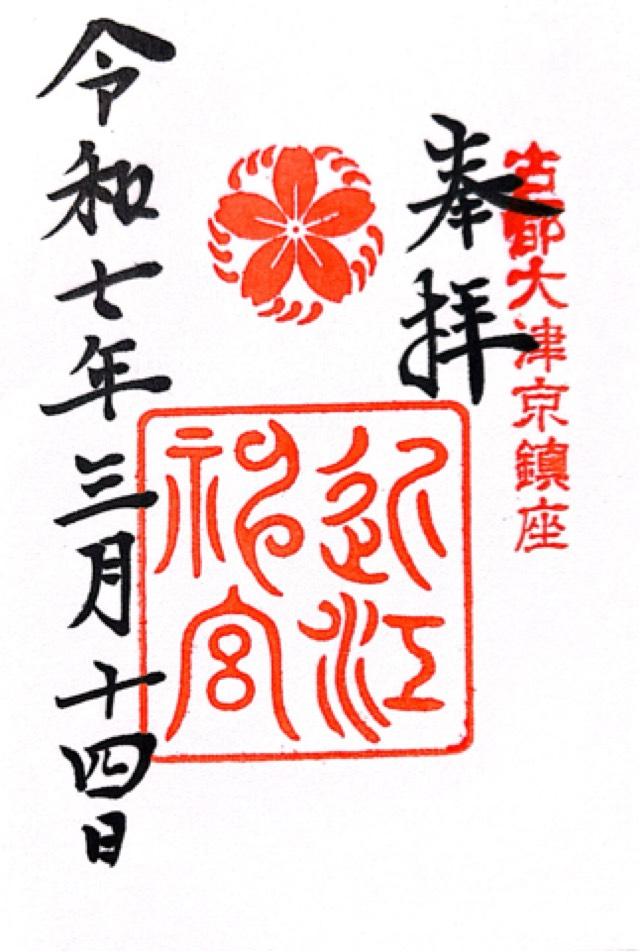 古都大津京鎮座
奉拝
近江
神宮
令和七年三月十四日